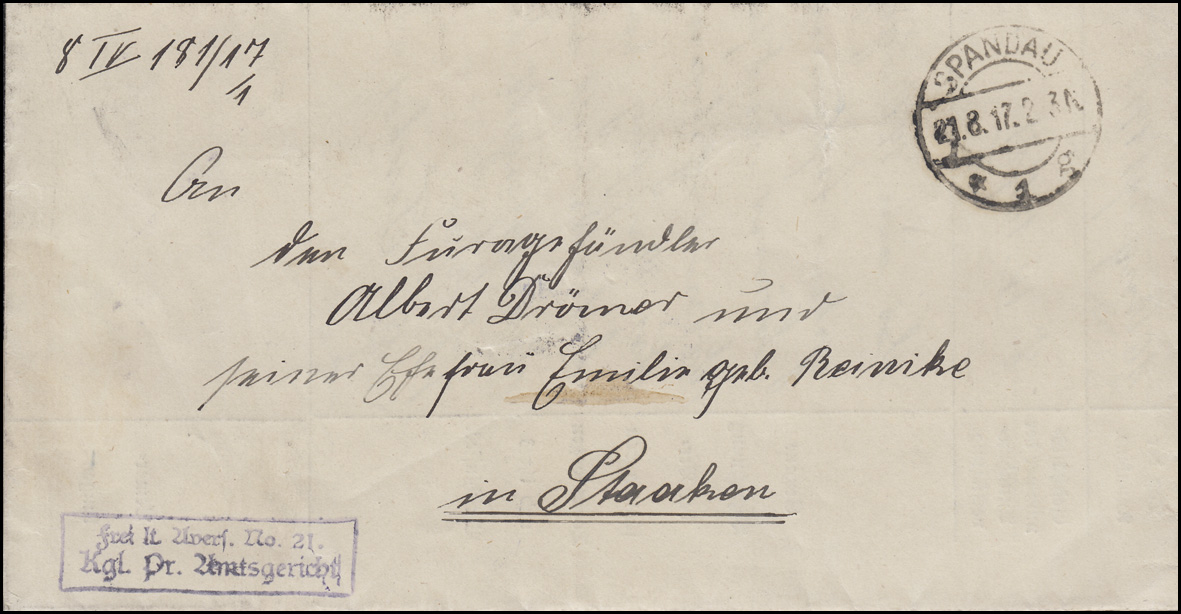 8 IV 181/17
/1
SPANDAU
21.8.17. 2-3 N
* 1
An
den Furagehändler
Albert Drömer und
seiner Ehefrau Emilie geb. Reinike
in Staaken
Frei lt. Avers. No. 21.
Kgl. Pr. Amtsgericht